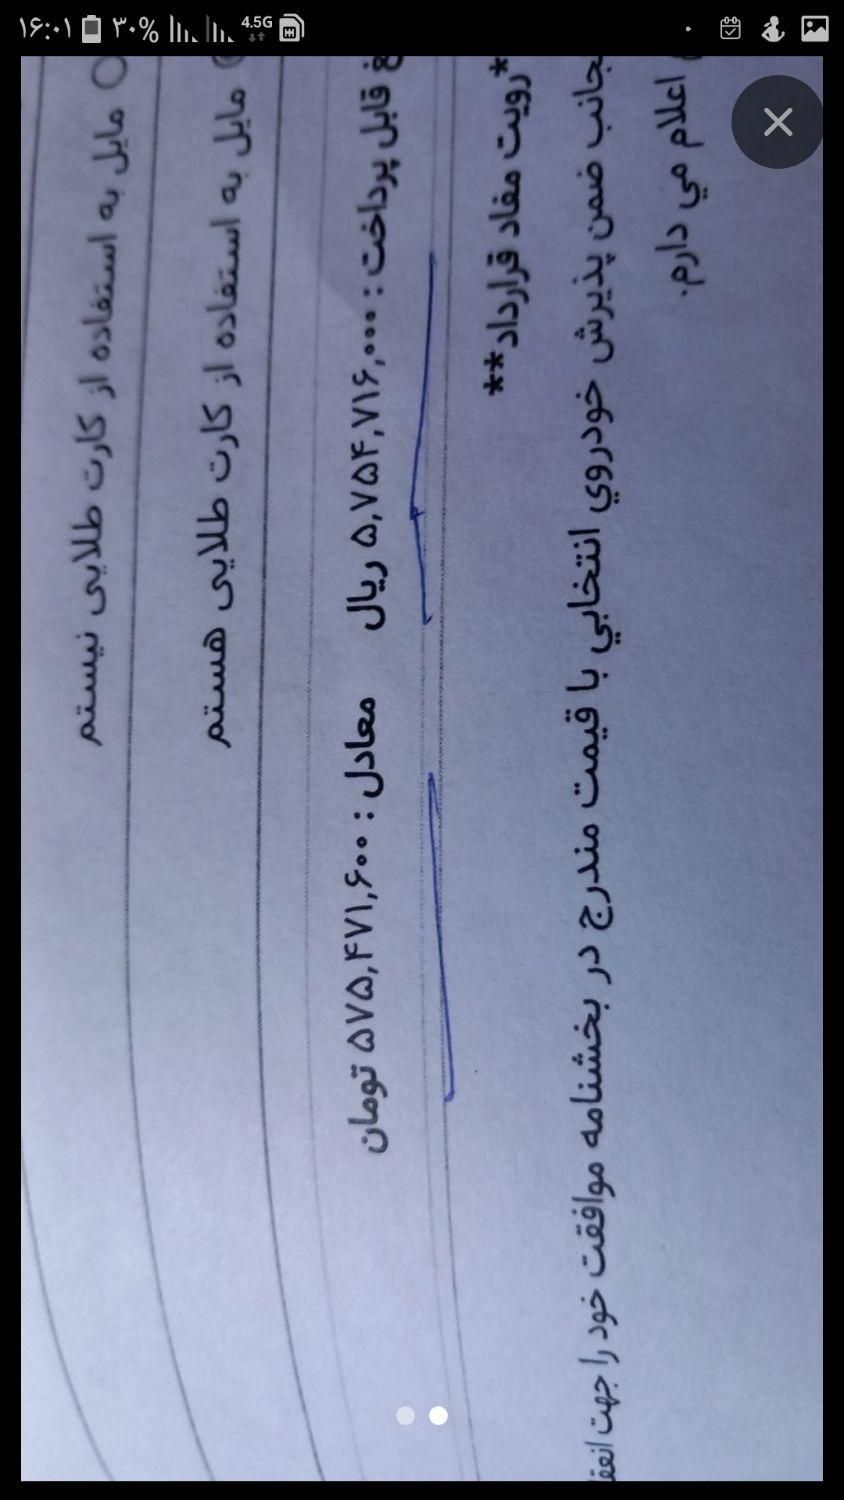 ۱۶:۰۱ ۳۰% 4.5G
مایل به استفاده از کارت طلایی نیستم
مایل به استفاده از کارت طلایی هستم
قابل پرداخت : ۵,۷۵۴,۷۱۶,۰۰۰ ریال معادل : ۵۷۵,۴۷۱,۶۰۰ تومان
*رویت مفاد قرارداد**
ضمن پذیرش خودروي انتخابي با قیمت مندرج در بخشنامه موافقت خود را جهت
اعلام مي دارم.